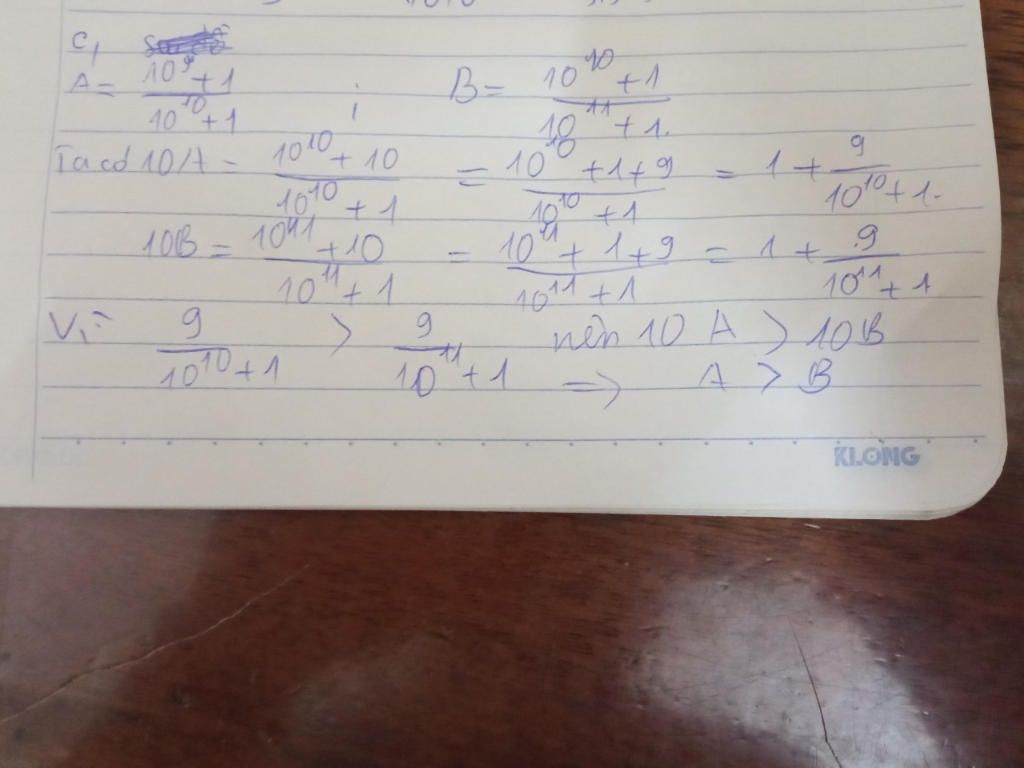 c,
A = (10^9 + 1)/(10^10 + 1) ; B = (10^10 + 1)/(10^11 + 1).
Ta có 10A = (10^10 + 10)/(10^10 + 1) = (10^10 + 1 + 9)/(10^10 + 1) = 1 + 9/(10^10 + 1).
10B = (10^11 + 10)/(10^11 + 1) = (10^11 + 1 + 9)/(10^11 + 1) = 1 + 9/(10^11 + 1)
Vì 9/(10^10 + 1) > 9/(10^11 + 1) nên 10A > 10B
=> A > B
KLONG